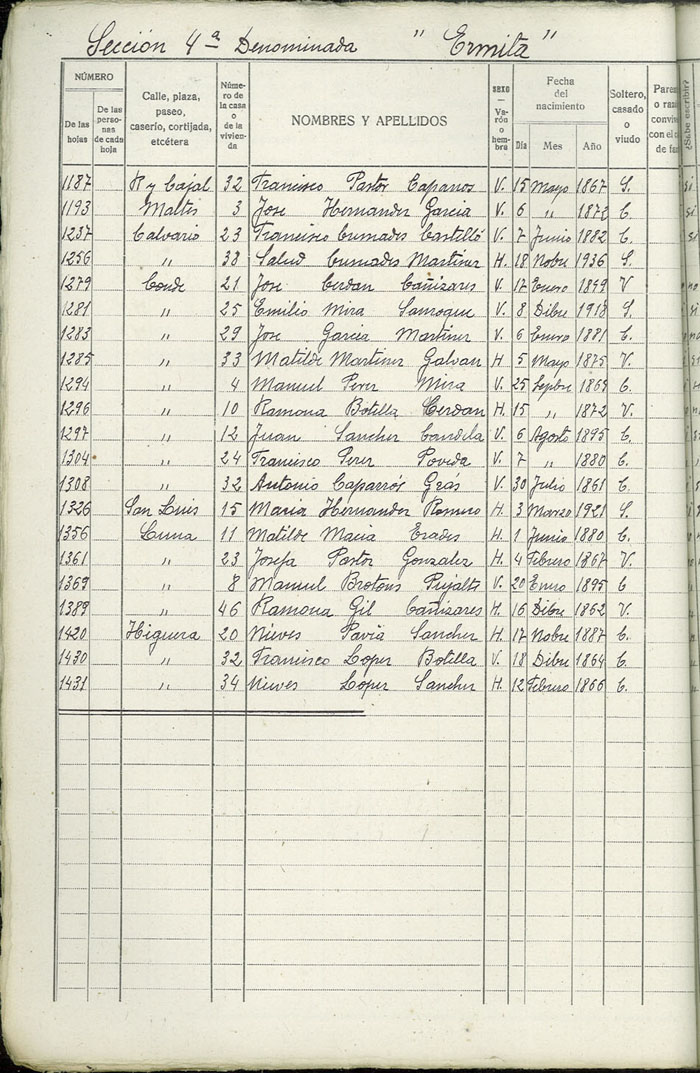 Sección 4ª Denominada " Ermita "
NÚMERO
De las hojas
De las personas de cada hoja
Calle, plaza, paseo, caserío, cortijada, etcétera
Número de la casa o de la vivienda
NOMBRES Y APELLIDOS
SEXO — Varón o hembra
Fecha del nacimiento
Día Mes Año
Soltero, casado o viudo
Paren
o razó
conviven
con el c
de fam
¿Sabe escribir?
1187 R y Cajal 32 Francisco Pastor Caparros V. 15 Mayo 1867 S.
1193 Maltés 3 Jose Hernander Garcia V. 6 " 1872 C.
1237 Calvario 23 Francisco Cumades Castelló V. 7 Junio 1882 C.
1256 " 38 Salud Cumades Martiner H. 18 Nobre 1936 S.
1279 Conde 21 Jose Cerdan Cañizares V. 17 Enero 1899 V
1281 " 25 Emilio Mira Sanroque V. 8 Dibre 1918 S.
1283 " 29 Jose Garcia Martiner V. 6 Enero 1881 C.
1285 " 33 Matilde Martiner Galvan H 5 Mayo 1875 V.
1294 " 4 Manuel Perer Mira V. 25 Sepbre 1869 C.
1296 " 10 Ramona Botella Cerdan H. 15 " 1872 V.
1297 " 12 Juan Sancher Candela V. 6 Agosto 1895 C.
1304 " 24 Francisco Perer Poveda V. 7 " 1880 C.
1308 " 32 Antonio Caparrós Grás V. 30 Julio 1861 C.
1326 San Luis 15 Maria Hernander Romero H. 3 Marzo 1921 S.
1356 Luna 11 Matilde Macia Erades H. 1 Junio 1880 C.
1361 " 23 Josefa Pastor Gonzalez H. 4 Febrero 1867 V.
1369 " 8 Manuel Brotons Pujalte V. 20 Enero 1895 C
1389 " 46 Ramona Gil Cañizares H. 16 Dibre 1862 V.
1420 Higuera 20 Nieves Pavia Sancher H. 17 Nobre 1887 C.
1430 " 32 Francisco Loper Botella V. 18 Dibre 1864 C.
1431 " 34 Nieves Loper Sancher H. 12 Febrero 1866 C.